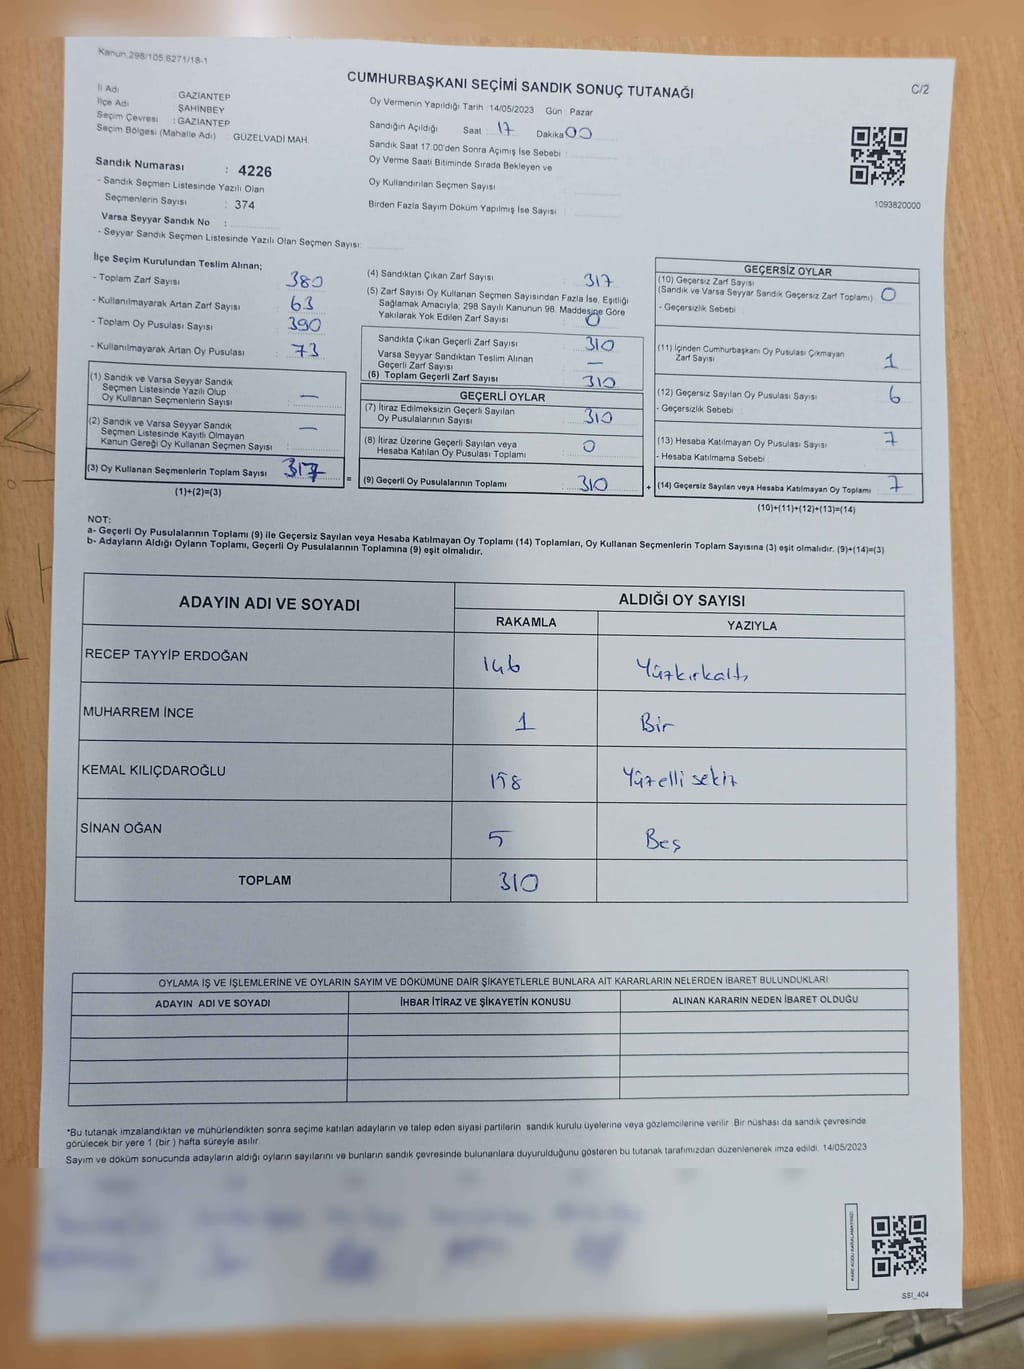 Kanun:298/105;6271/18-1
CUMHURBAŞKANI SEÇİMİ SANDIK SONUÇ TUTANAĞI
C/2
İl Adı : GAZİANTEP
İlçe Adı : ŞAHİNBEY
Seçim Çevresi : GAZİANTEP
Seçim Bölgesi (Mahalle Adı) : GÜZELVADİ MAH.
Oy Vermenin Yapıldığı Tarih : 14/05/2023 Gün : Pazar
Sandığın Açıldığı Saat : 17 Dakika 00
Sandık Saat 17:00'den Sonra Açımış İse Sebebi :
Oy Verme Saati Bitiminde Sırada Bekleyen ve
Oy Kullandırılan Seçmen Sayısı
Birden Fazla Sayım Döküm Yapılmış İse Sayısı :
1093820000
Sandık Numarası : 4226
- Sandık Seçmen Listesinde Yazılı Olan
Seçmenlerin Sayısı : 374
Varsa Seyyar Sandık No :
- Seyyar Sandık Seçmen Listesinde Yazılı Olan Seçmen Sayısı:
İlçe Seçim Kurulundan Teslim Alınan;
- Toplam Zarf Sayısı 380
- Kullanılmayarak Artan Zarf Sayısı 63
- Toplam Oy Pusulası Sayısı 390
- Kullanılmayarak Artan Oy Pusulası 73
(1) Sandık ve Varsa Seyyar Sandık
Seçmen Listesinde Yazılı Olup
Oy Kullanan Seçmenlerin Sayısı : —
(2) Sandık ve Varsa Seyyar Sandık
Seçmen Listesinde Kayıtlı Olmayan
Kanun Gereği Oy Kullanan Seçmen Sayısı : —
(3) Oy Kullanan Seçmenlerin Toplam Sayısı 317
(1)+(2)=(3)
(4) Sandıktan Çıkan Zarf Sayısı 317
(5) Zarf Sayısı Oy Kullanan Seçmen Sayısından Fazla İse, Eşitliği
Sağlamak Amacıyla; 298 Sayılı Kanunun 98. Maddesine Göre
Yakılarak Yok Edilen Zarf Sayısı : 0
Sandıkta Çıkan Geçerli Zarf Sayısı 310
Varsa Seyyar Sandıktan Teslim Alınan
Geçerli Zarf Sayısı —
(6) Toplam Geçerli Zarf Sayısı 310
GEÇERLİ OYLAR
(7) İtiraz Edilmeksizin Geçerli Sayılan
Oy Pusulalarının Sayısı 310
(8) İtiraz Üzerine Geçerli Sayılan veya
Hesaba Katılan Oy Pusulası Toplamı : 0
= (9) Geçerli Oy Pusulalarının Toplamı 310
GEÇERSİZ OYLAR
(10) Geçersiz Zarf Sayısı
(Sandık ve Varsa Seyyar Sandık Geçersiz Zarf Toplamı) 0
- Geçersizlik Sebebi
(11) İçinden Cumhurbaşkanı Oy Pusulası Çıkmayan
Zarf Sayısı 1
(12) Geçersiz Sayılan Oy Pusulası Sayısı 6
- Geçersizlik Sebebi
(13) Hesaba Katılmayan Oy Pusulası Sayısı 7
- Hesaba Katılmama Sebebi
+ (14) Geçersiz Sayılan veya Hesaba Katılmayan Oy Toplamı : 7
(10)+(11)+(12)+(13)=(14)
NOT:
a- Geçerli Oy Pusulalarının Toplamı (9) ile Geçersiz Sayılan veya Hesaba Katılmayan Oy Toplamı (14) Toplamları, Oy Kullanan Seçmenlerin Toplam Sayısına (3) eşit olmalıdır. (9)+(14)=(3)
b- Adayların Aldığı Oyların Toplamı, Geçerli Oy Pusulalarının Toplamına (9) eşit olmalıdır.
ADAYIN ADI VE SOYADI
ALDIĞI OY SAYISI
RAKAMLA YAZIYLA
RECEP TAYYİP ERDOĞAN 146 Yüzkırkaltı
MUHARREM İNCE 1 Bir
KEMAL KILIÇDAROĞLU 158 Yüzelli sekiz
SİNAN OĞAN 5 Beş
TOPLAM 310
OYLAMA İŞ VE İŞLEMLERİNE VE OYLARIN SAYIM VE DÖKÜMÜNE DAİR ŞİKAYETLERLE BUNLARA AİT KARARLARIN NELERDEN İBARET BULUNDUKLARI
ADAYIN ADI VE SOYADI İHBAR İTİRAZ VE ŞİKAYETİN KONUSU ALINAN KARARIN NEDEN İBARET OLDUĞU
*Bu tutanak imzalandıktan ve mühürlendikten sonra seçime katılan adayların ve talep eden siyasi partilerin sandık kurulu üyelerine veya gözlemcilerine verilir. Bir nüshası da sandık çevresinde
görülecek bir yere 1 (bir ) hafta süreyle asılır.
Sayım ve döküm sonucunda adayların aldığı oyların sayılarını ve bunların sandık çevresinde bulunanlara duyurulduğunu gösteren bu tutanak tarafımızdan düzenlenerek imza edildi. 14/05/2023
SSI_404